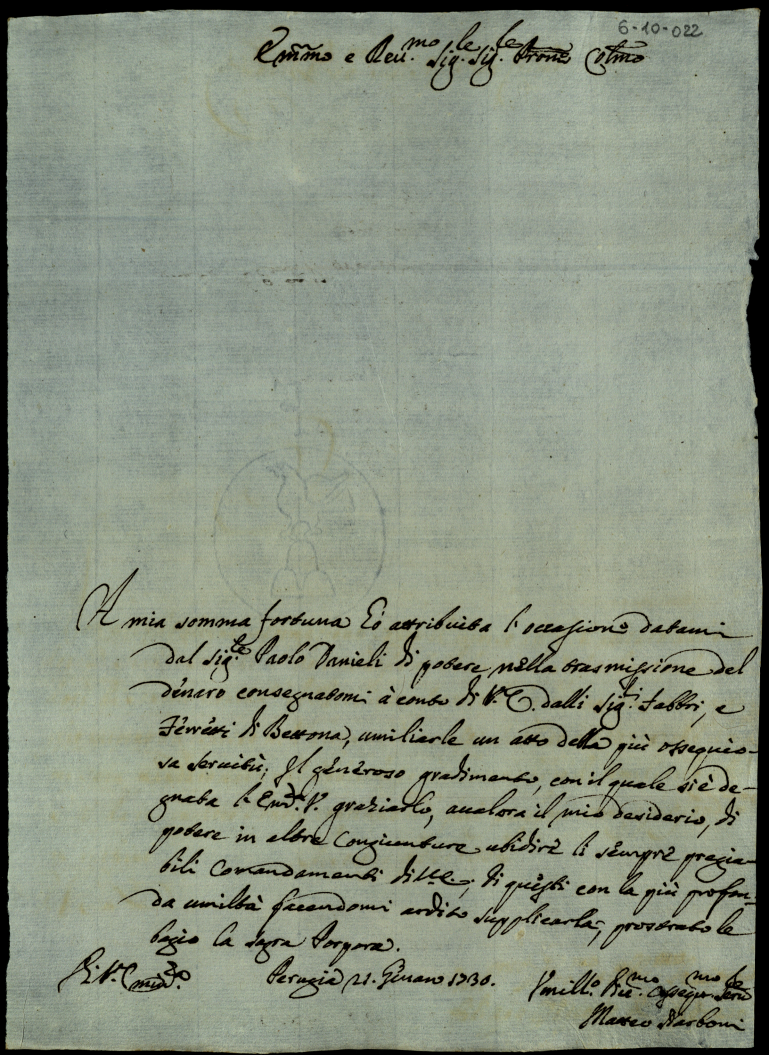 6-10-022
Em̃mo e Reu.mo Sig.le Sig.le Prone Colmo
A mia somma fortuna hò attribuita l'occasione datami
dal Sig.le Paolo Danieli di potere, nella trasmissione del
denaro consegnatomi à conto di V. E. dalli Sig.ri Fabbri, e
Ferretti di Bettona, umiliarle un atto della più ossequio-
sa servitù; Il generoso gradimento, con il quale si è de-
gnata l'Em.a V. graziarlo, avalora il mio desiderio, di
potere in altre congiunture ubidire li sempre pregia-
bili comandamenti di V. E.; di questi con la più profon-
da umiltà facendomi ardito supplicarla, prostrato le
bagio la sagra Porpora.
Di V. Em.za
Perugia 21. Genaro 1730.
Vmill.o Ossequ.mo
Matteo Narboni